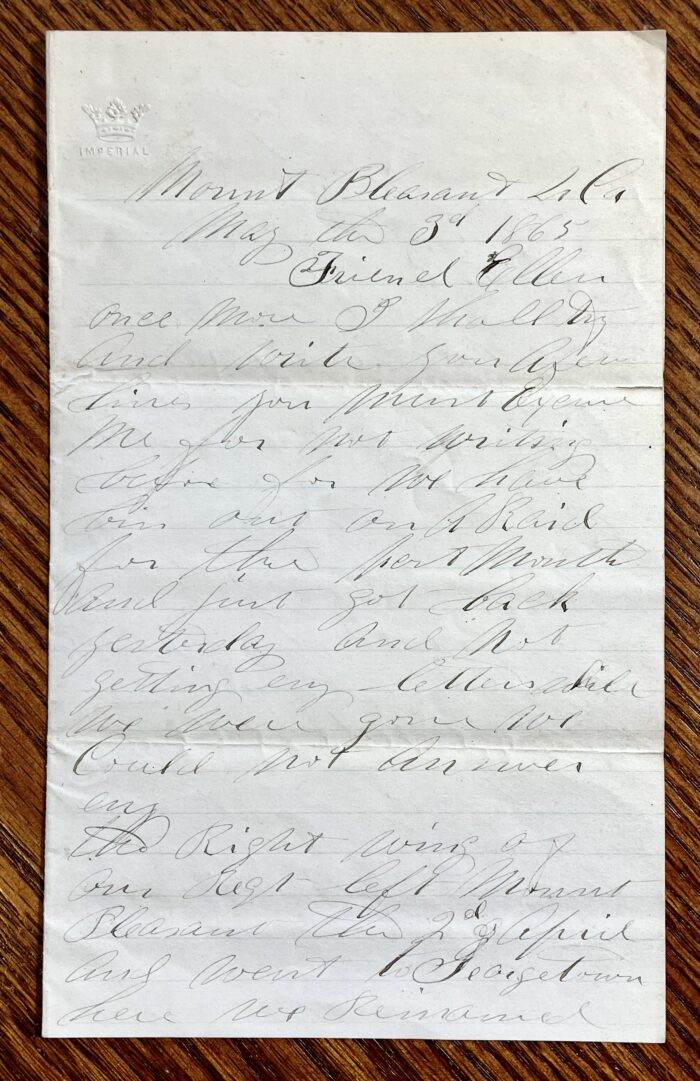 IMPERIAL
Mount Pleasant S Ca
May the 3d 1865
Friend Ellen
once More I shall try
And write you A few
lines you Must Excuse
Me for not writing
before for We have
bin out on A Raid
for the past Month
And just got back
yesterday And Not
getting eny letters while
We Were gone We
Could not Answer
eny
the Right wing of
our Regt left Mount
Pleasant the 2d of April
And went to Georgetown
here we Remained